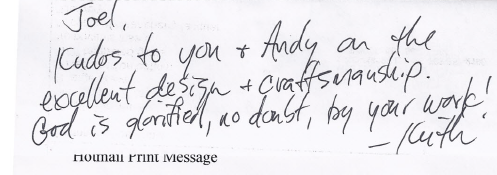 Joel,
Kudos to you + Andy on the
excellent design + craftsmanship.
God is glorified, no doubt, by your work!
- Keith
Hotmail Print Message